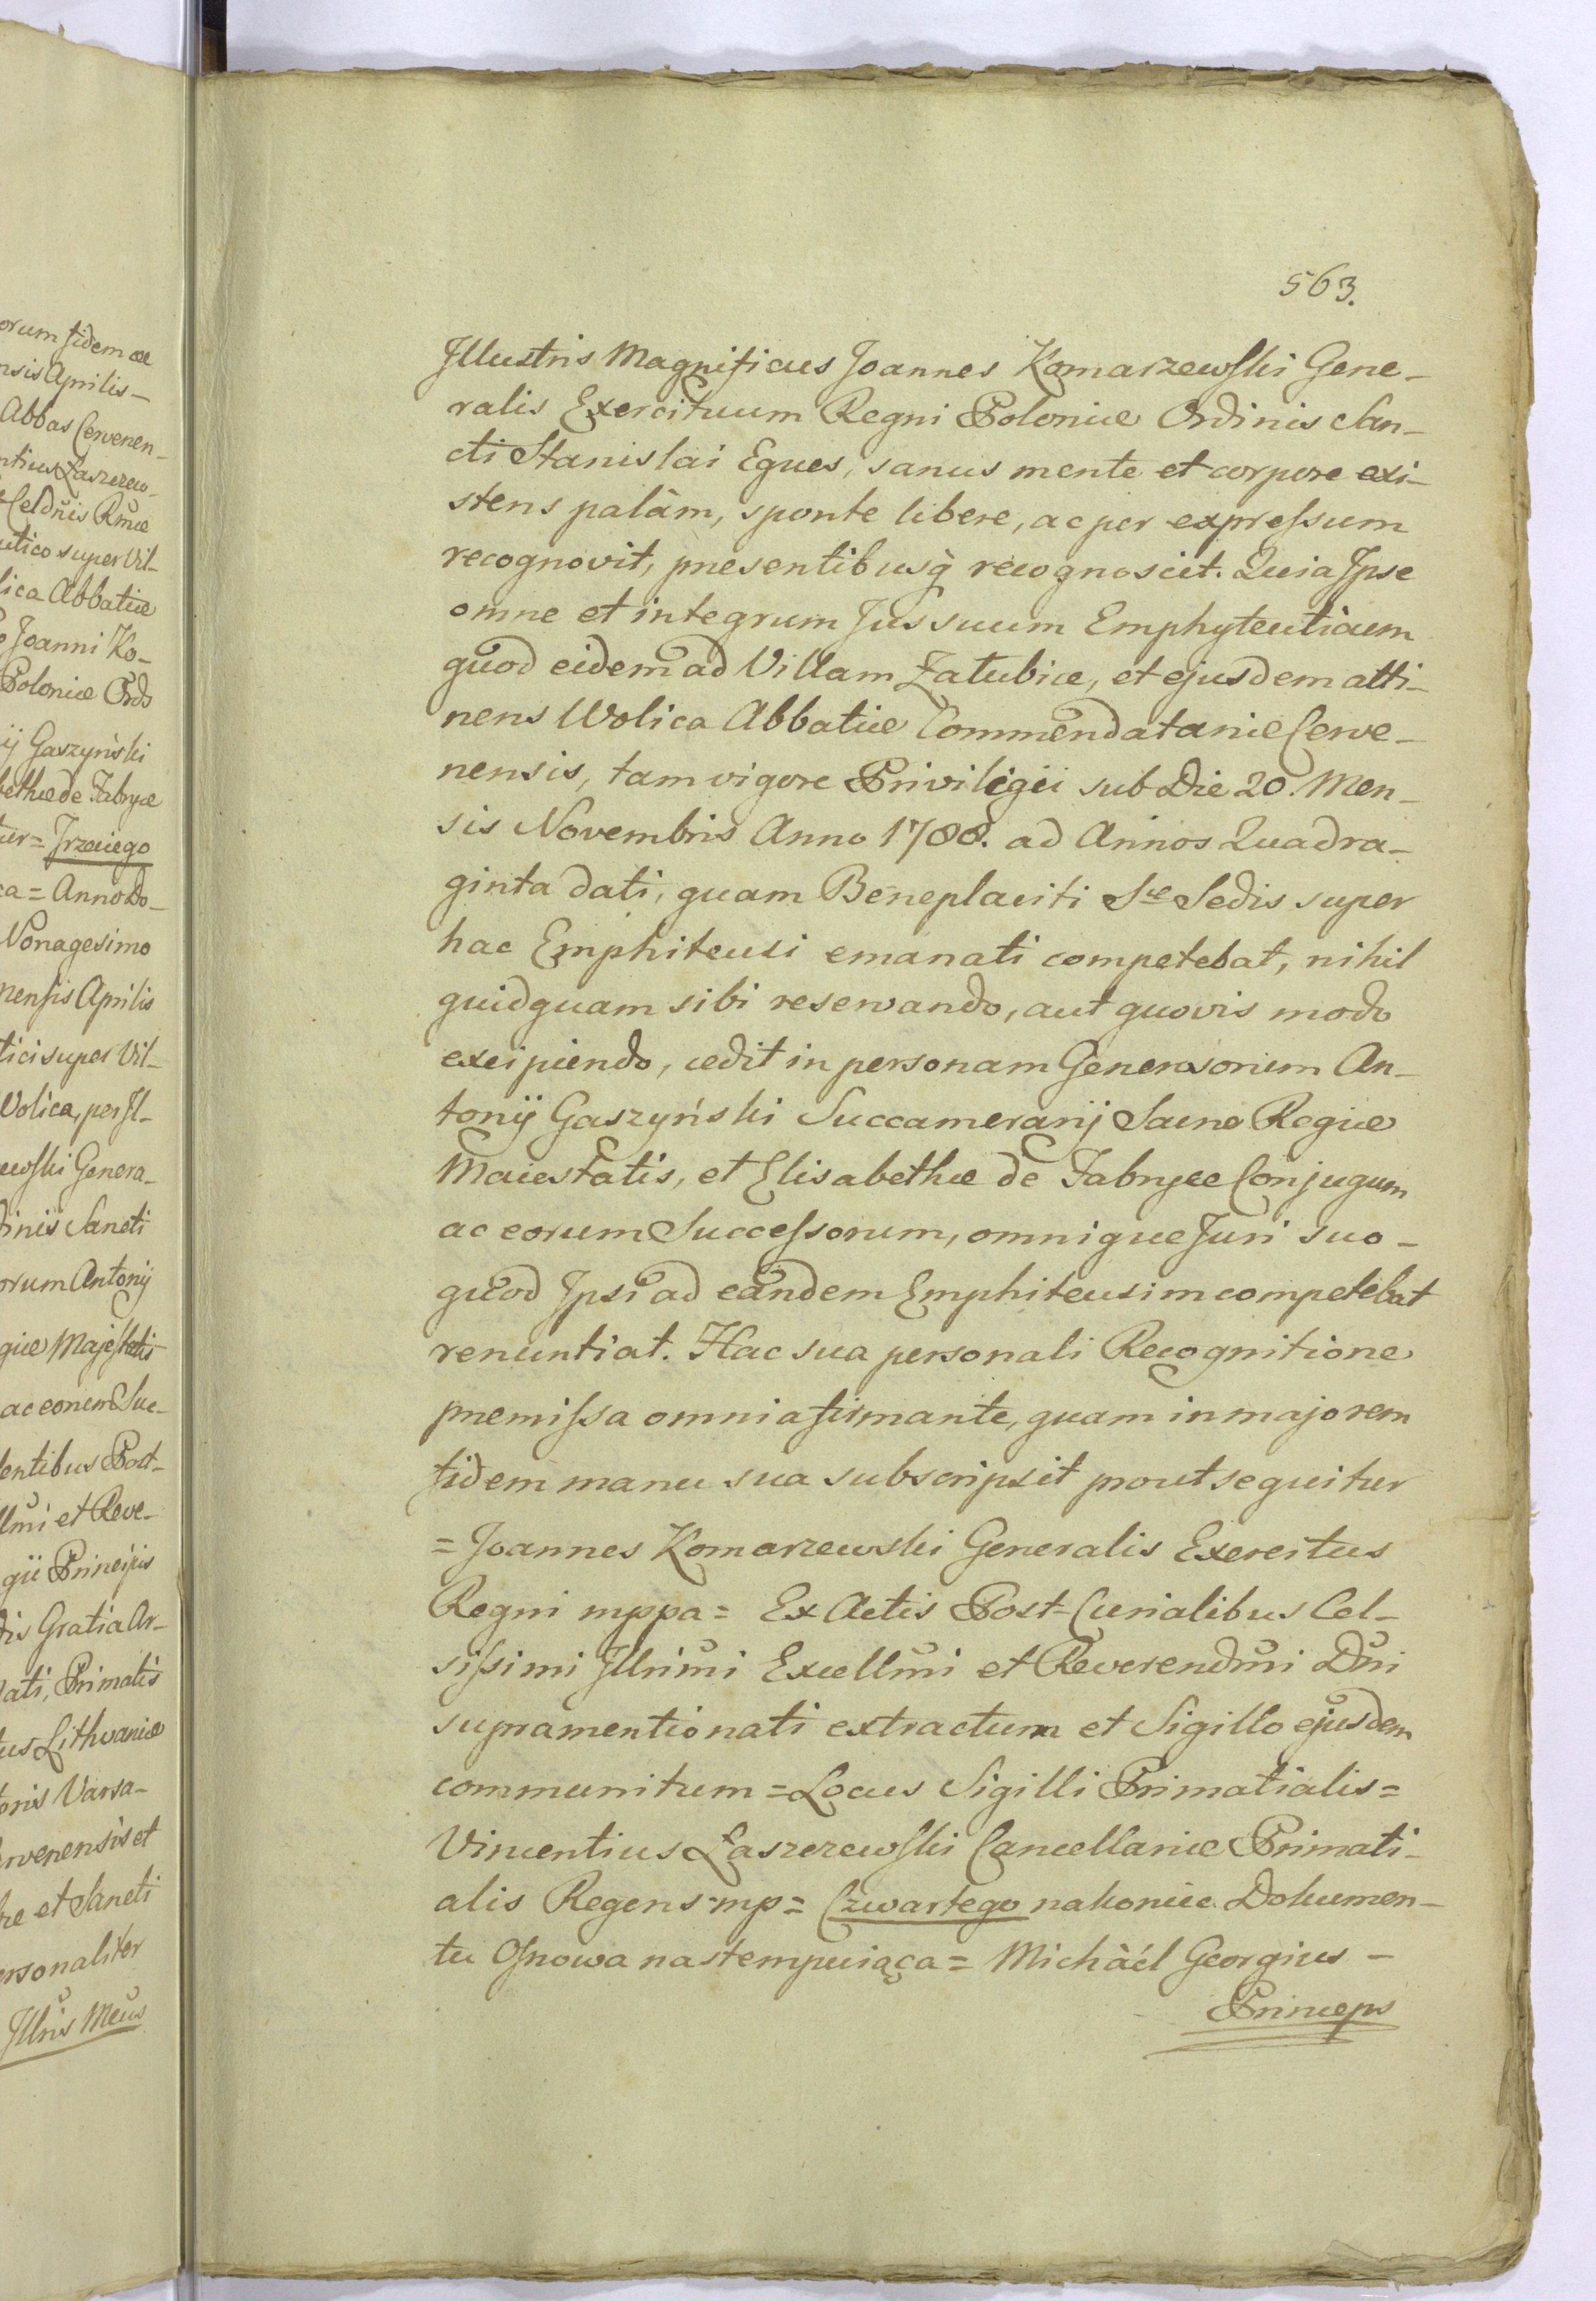 orum fidem ac
nsis Aprilis —
Abbas Cervenen-
ntius Łaszczew-
Celdnis Rmae
utico super Vil-
lica Abbatiae
Joanni Ko-
Poloniae Ordi
ij Gaszyński
bethae de Fabryce
tur = Trzeciego
ca = Anno Do-
Nonagesimo
mensis Aprilis
tici super Vil-
Wolica, per Jl-
ewski Genera-
dinis Sancti
orum Antonij
giae Majestatis
ac eorum Suc-
dentibus Post-
llmi et Reve-
gii Principis
dis Gratia Ar-
lati, Primatis
tus Lithvaniae
toris Varsa-
ervenensis et
re et Sancti
ersonaliter
Jllris Mcus
563.
Jllustris Magnificus Joannes Komarzewski Gene-
ralis Exercituum Regni Poloniae Ordinis San-
cti Stanislai Eques, sanus mente et corpore exi-
stens palàm, sponte libere, ac per expressum
recognovit, presentibusq̀ recognoscit. Quia Jpse
omne et integrum Jus suum Emphyteuticum
quod eidem ad Villam Załubice, et ejusdem atti-
nens Wolica Abbatiae Commendatariae Cerve-
nensis, tam vigore Priviligii sub Die 20. Men-
sis Novembris Anno 1788. ad Annos Quadra-
ginta dati, quam Beneplaciti Sae Sedis super
hac Emphiteusi emanati competebat, nihil
quidquam sibi reservando, aut quovis modo
excipiendo, cedit in personam Generosorum An-
tonij Gaszyński Succamerarij Sacrae Regiae
Maiestatis, et Elisabethae de Fabryce Conjugum
ac eorum Successorum, omnique Juri suo -
quod Jpsi ad eandem Emphiteusim competebat
renuntiat. Hac sua personali Recognitione
premissa omnia firmante, quam in majorem
fidem manu sua subscripsit prout sequitur
= Joannes Komarzewski Generalis Exercitus
Regni mppa = Ex Actis Post-Curialibus Cel-
sissimi Jllrimi Excellmi et Reverendmi Dni
supramentionati extractum et Sigillo ejusdem
communitum = Locus Sigilli Primatialis =
Vincentius Łaszczewski Cancellariae Primati-
alis Regens mp = Czwartego nakoniec Dokumen-
tu Osnowa nastempuiąca = Michàél Georgius —
Princeps